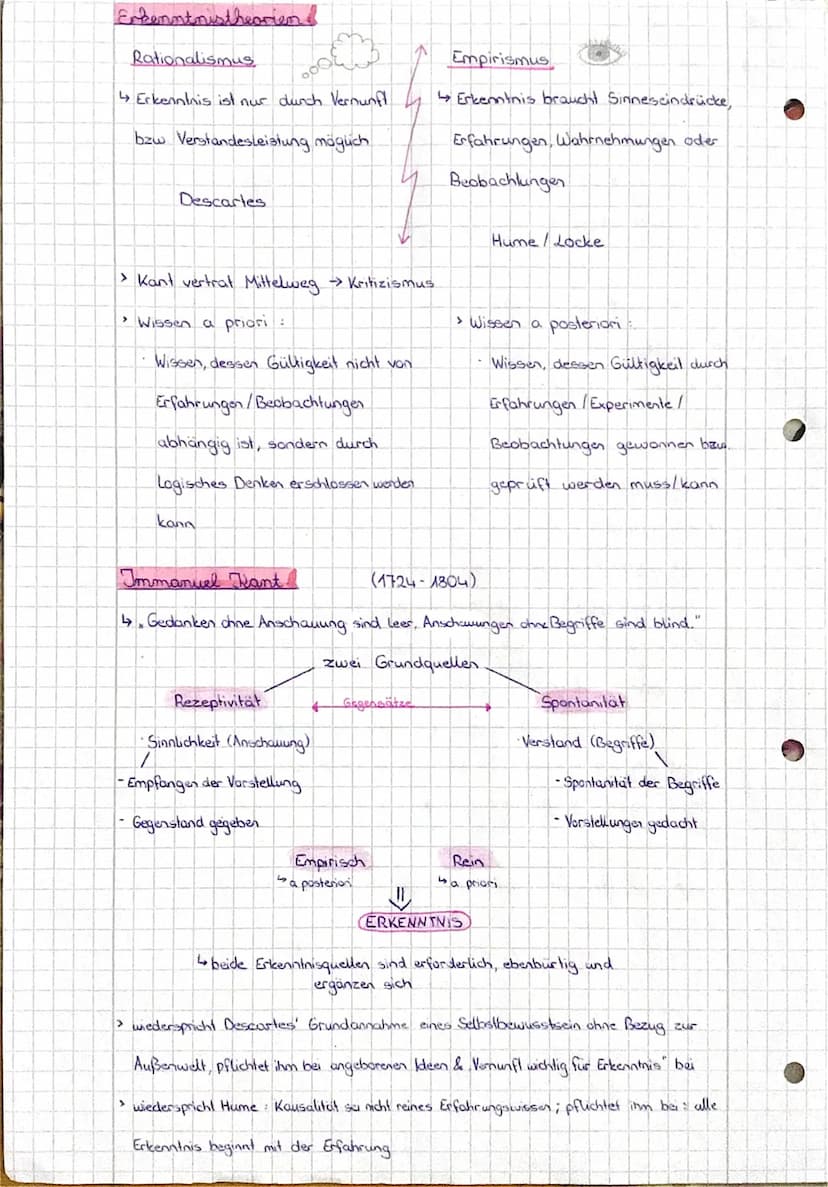 Erkenntnistheorien
Rationalismus
↳ Erkenntnis ist nur durch Vernunft
bzw Verstandesleistung möglich
Descartes
Empirismus
↳ Erkenntnis braucht Sinneseindrücke,
Erfahrungen, Wahrnehmungen oder
Beobachtungen
Hume / Locke
> Kant vertrat Mittelweg → Kritizismus
> Wissen a priori :
· Wissen, dessen Gültigkeit nicht von
Erfahrungen/Beobachtungen
abhängig ist, sondern durch
logisches Denken erschlossen werden
kann
> Wissen a posteriori :
· Wissen, dessen Gültigkeit durch
Erfahrungen /Experimente /
Beobachtungen gewonnen bzw.
geprüft werden muss/kann
Immanuel Kant
(1724 - 1804)
↳ „Gedanken ohne Anschauung sind leer, Anschauungen ohne Begriffe sind blind."
zwei Grundquellen
Rezeptivität
Gegensätze
Spontanität
· Sinnlichkeit (Anschauung)
· Verstand (Begriffe)
- Empfangen der Vorstellung
- Spontanität der Begriffe
- Gegenstand gegeben
- Vorstellungen gedacht
Empirisch
↳ a posteriori
Rein
↳ a priori
ERKENNTNIS
↳ beide Erkenntnisquellen sind erforderlich, ebenbürtig und
ergänzen sich
> wiederspricht Descartes' Grundannahme eines Selbstbewusstsein ohne Bezug zur
Außenwelt, pflichtet ihm bei angeborenen Ideen & „Vernunft wichtig für Erkenntnis" bei
> wiederspricht Hume : Kausalität sei nicht reines Erfahrungswissen ; pflichtet ihm bei : alle
Erkenntnis beginnt mit der Erfahrung